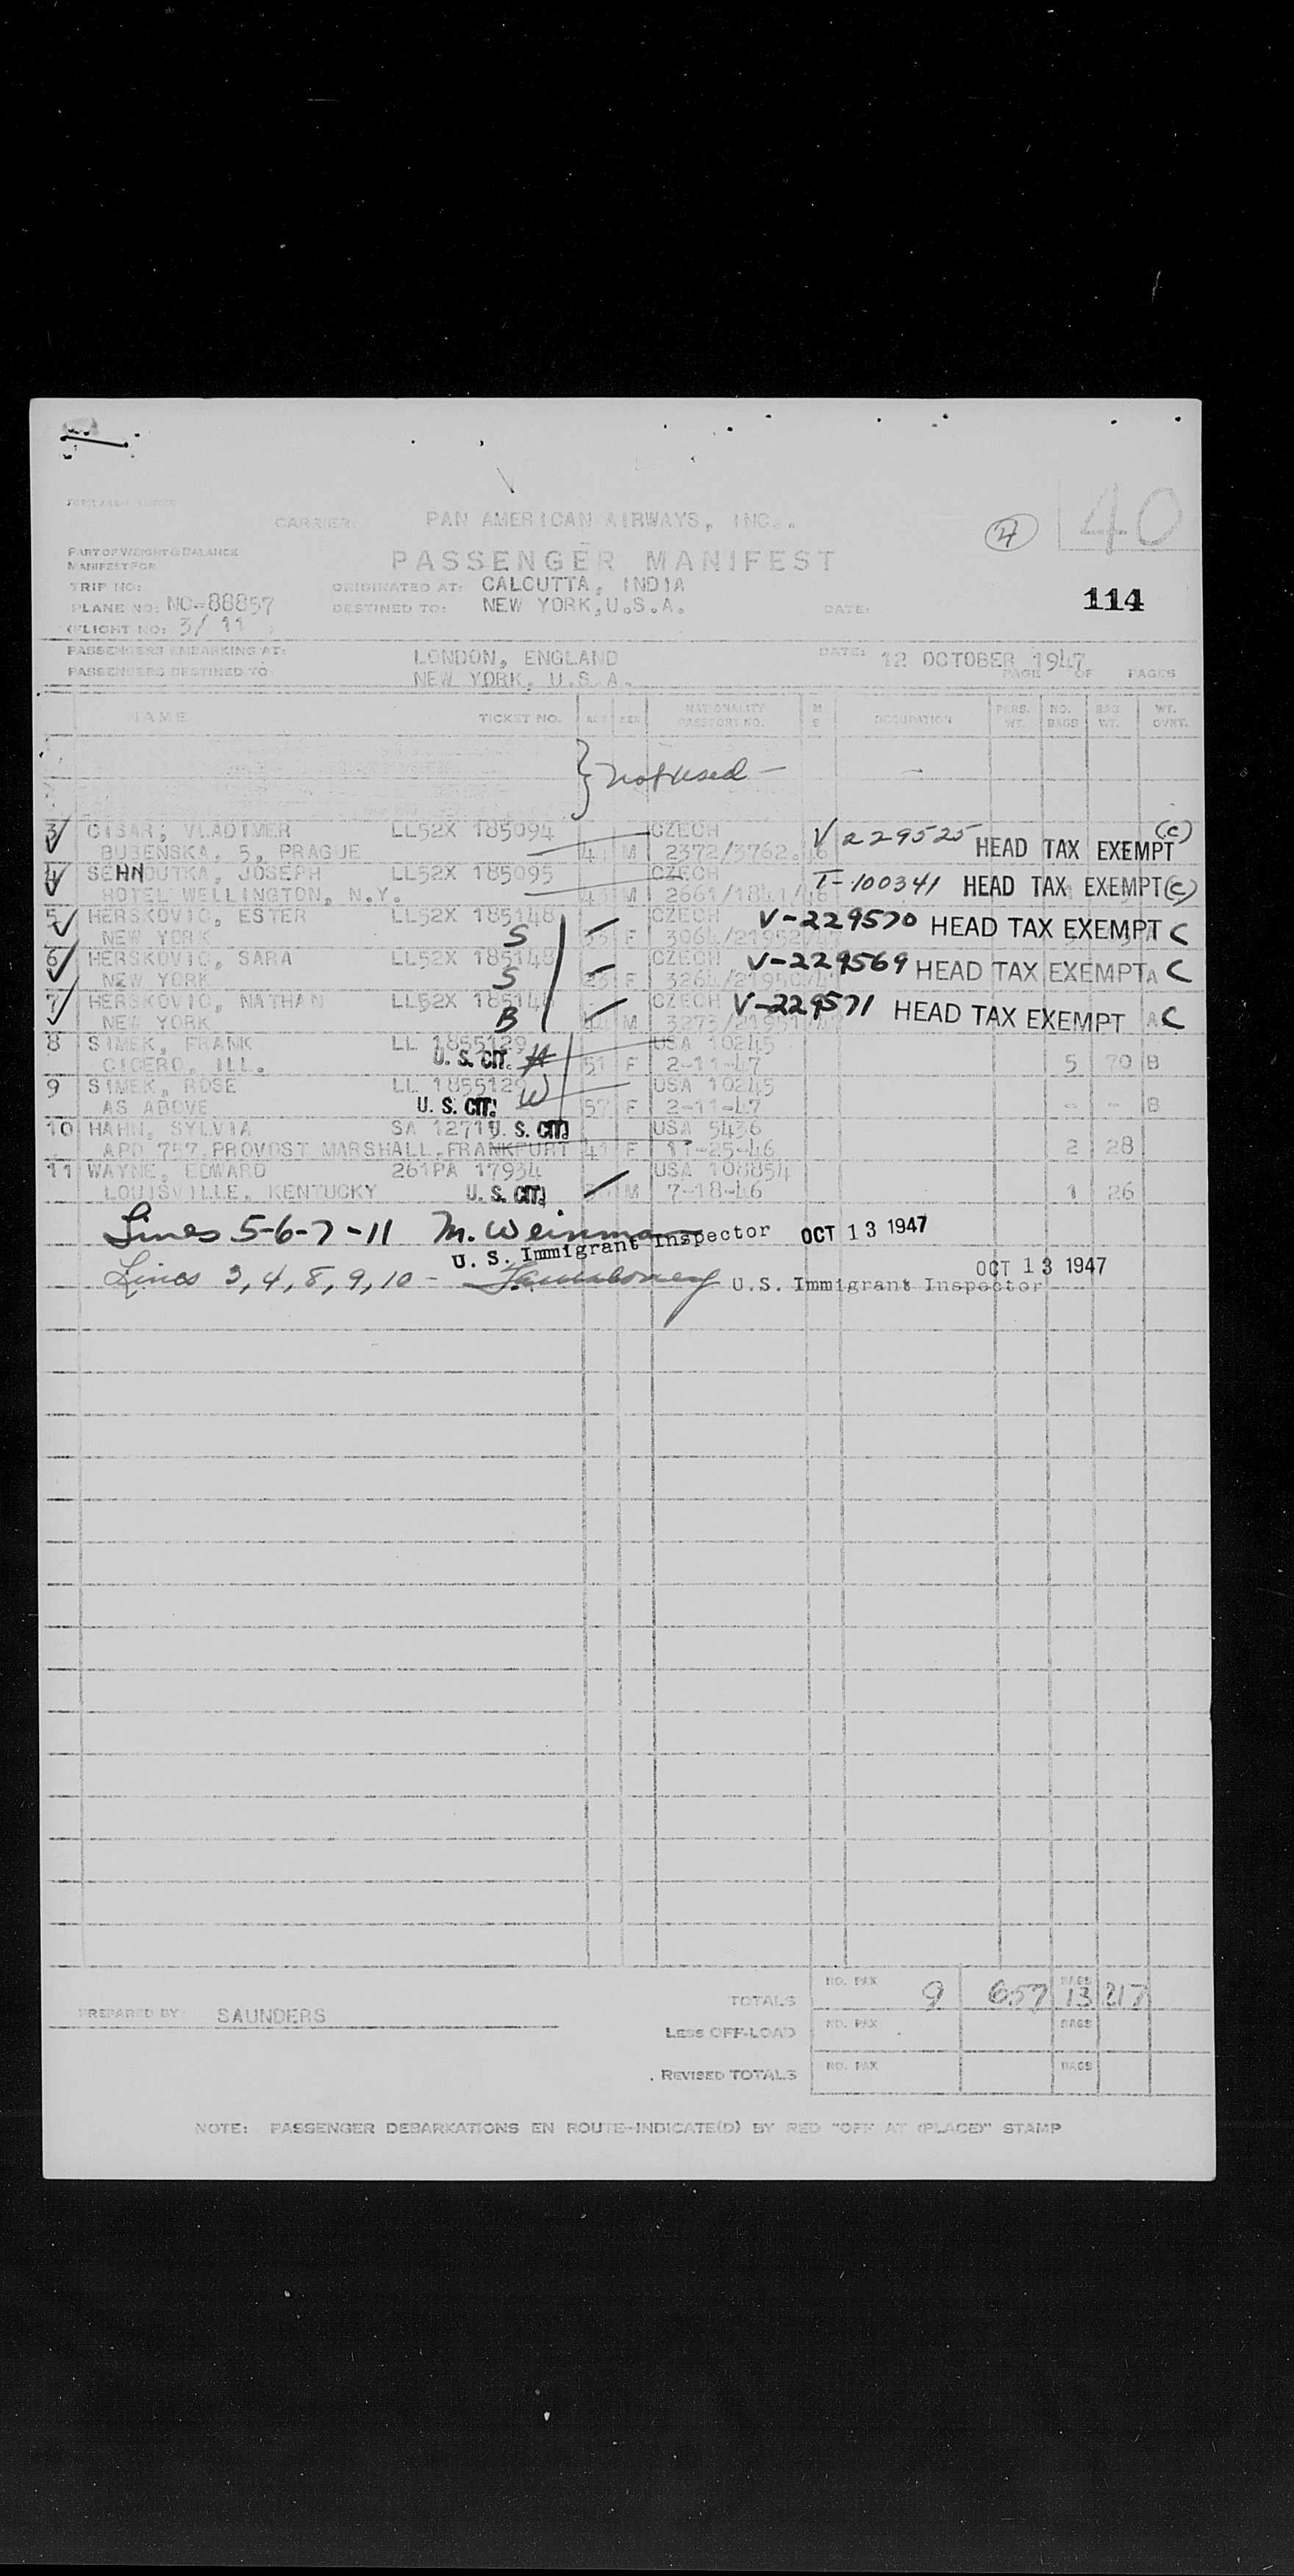 CARRIER: PAN AMERICAN AIRWAYS, INC..
4
40
PART OF WEIGHT & BALANCE
MANIFEST FOR
PASSENGER MANIFEST
TRIP NO:
ORIGINATED AT: CALCUTTA, INDIA
PLANE NO: NC-88857
DESTINED TO: NEW YORK, U.S.A.
DATE:
114
(FLIGHT NO: 3/11 )
PASSENGERS EMBARKING AT: LONDON, ENGLAND
DATE: 12 OCTOBER 1947
PASSENGERS DESTINED TO: NEW YORK, U.S.A.
PAGE OF PAGES
NAME TICKET NO. AGE SEX NATIONALITY PASSPORT NO. M S OCCUPATION PERS. WT. NO. BAGS BAG WT. WT. OVNT.
} not used —
3 CISAR, VLADIMER LL52X 185094 CZECH V 229525 HEAD TAX EXEMPT (C)
BUBENSKA, 5, PRAGUE M 2372/3762
4 SEHNOUTKA, JOSEPH LL52X 185095 CZECH T-100341 HEAD TAX EXEMPT (C)
HOTEL WELLINGTON, N.Y. M 2661/1841/46
5 HERSKOVIC, ESTER LL52X 185148 CZECH V-229570 HEAD TAX EXEMPT C
NEW YORK S F
6 HERSKOVIC, SARA LL52X 185148 CZECH V-229569 HEAD TAX EXEMPT A C
NEW YORK S F
7 HERSKOVIC, NATHAN LL52X 185148 CZECH V-229571 HEAD TAX EXEMPT A C
NEW YORK B M
8 SIMEK, FRANK LL 1855129 USA 10245
CICERO, ILL. U. S. CIT. H 51 F 2-11-47 5 70 B
9 SIMEK, ROSE LL 1855129 USA 10245
AS ABOVE U. S. CIT. W 57 F 2-11-47 - - B
10 HAHN, SYLVIA SA 12711 U. S. CIT. USA 5436
APO 757, PROVOST MARSHALL, FRANKFURT 41 F 11-25-46 2 28
11 WAYNE, EDWARD 261PA 17934 USA 108854
LOUISVILLE, KENTUCKY U. S. CIT. M 7-18-46 1 26
Lines 5-6-7-11 M. Weinman
U. S. Immigrant Inspector OCT 13 1947
Lines 3, 4, 8, 9, 10 - U.S. Immigrant Inspector OCT 13 1947
TOTALS NO. PAX 9 657 BAGS 13 217
PREPARED BY: SAUNDERS
LESS OFF-LOAD NO. PAX BAGS
REVISED TOTALS NO. PAX BAGS
NOTE: PASSENGER DEBARKATIONS EN ROUTE-INDICATE(D) BY RED "OFF AT (PLACE)" STAMP